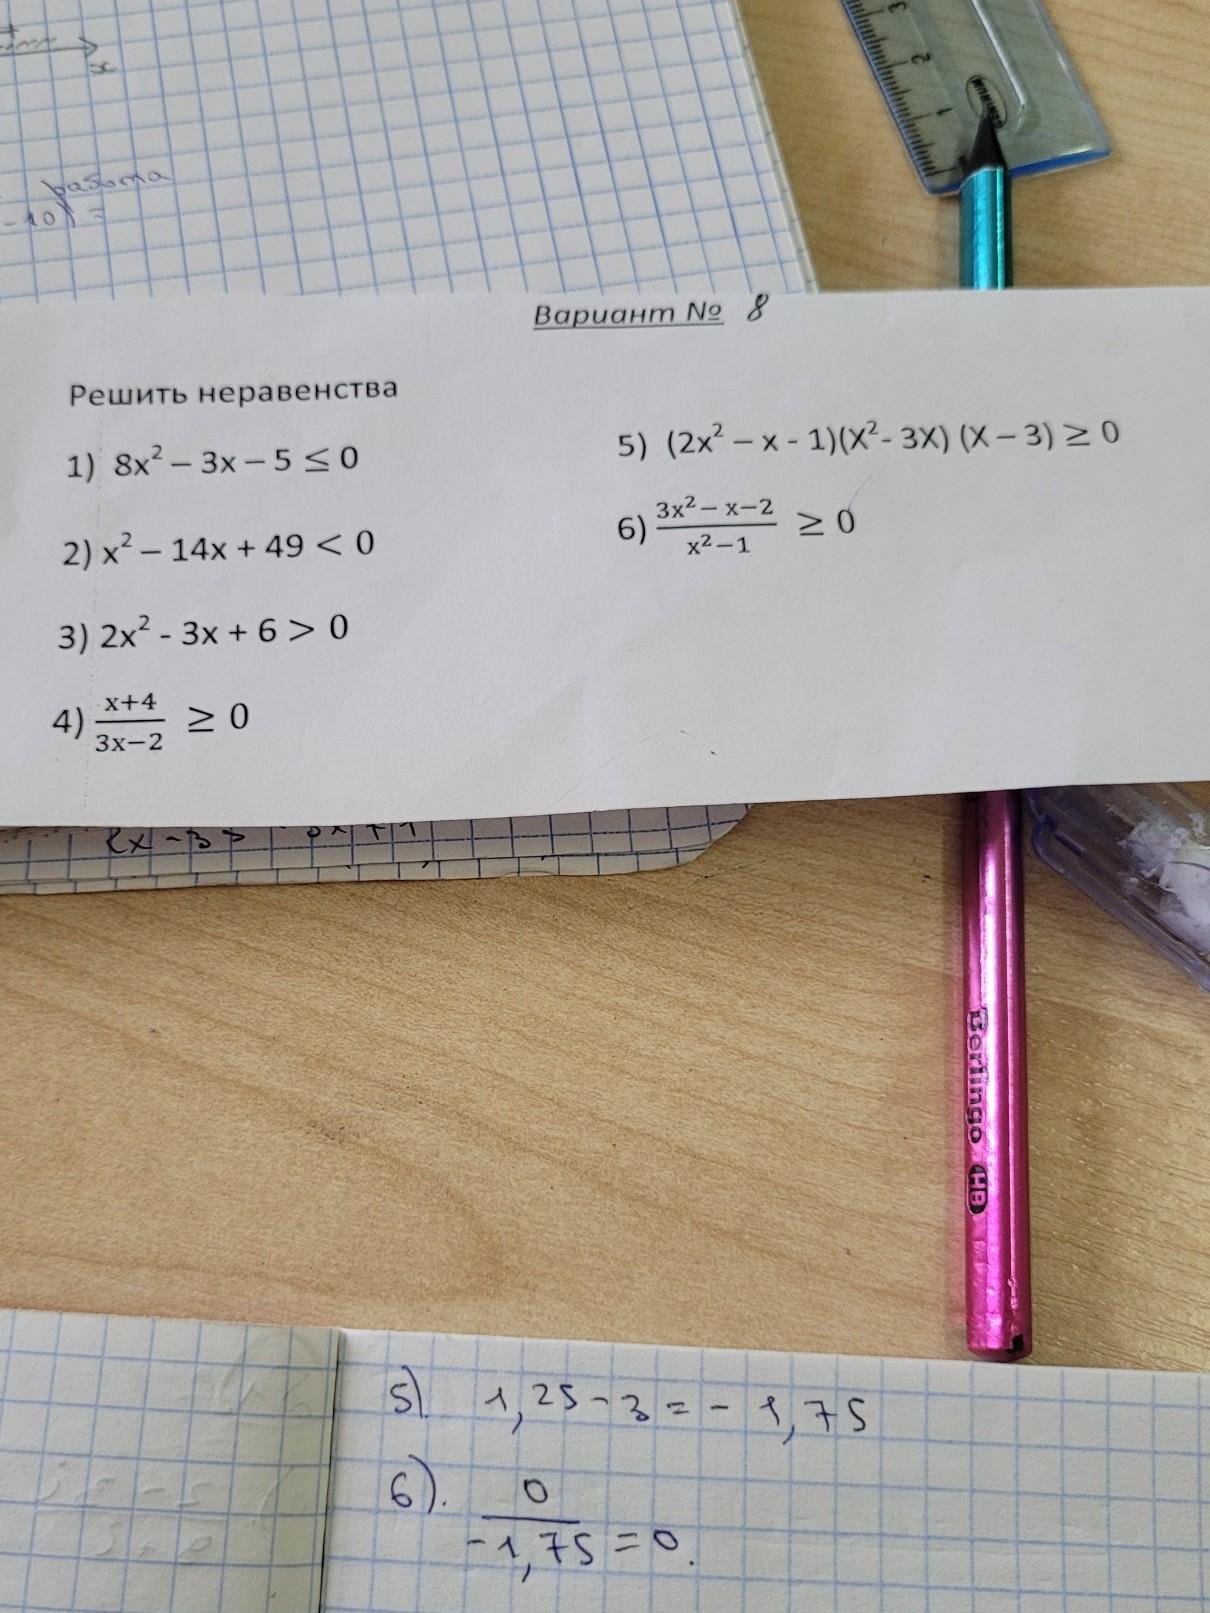 3
2
1
x
работа
-10) =
Вариант № 8
Решить неравенства
1) 8x² – 3x – 5 ≤ 0
2) x² – 14x + 49 < 0
3) 2x² - 3x + 6 > 0
4) \frac{x+4}{3x−2} ≥ 0
5) (2x² – x - 1)(X²- 3X) (X – 3) ≥ 0
6) \frac{3x²− x−2}{x²−1} ≥ 0
Berlingo HB
5). 1,25 - 3 = - 1,75
6). \frac{0}{-1,75} = 0.